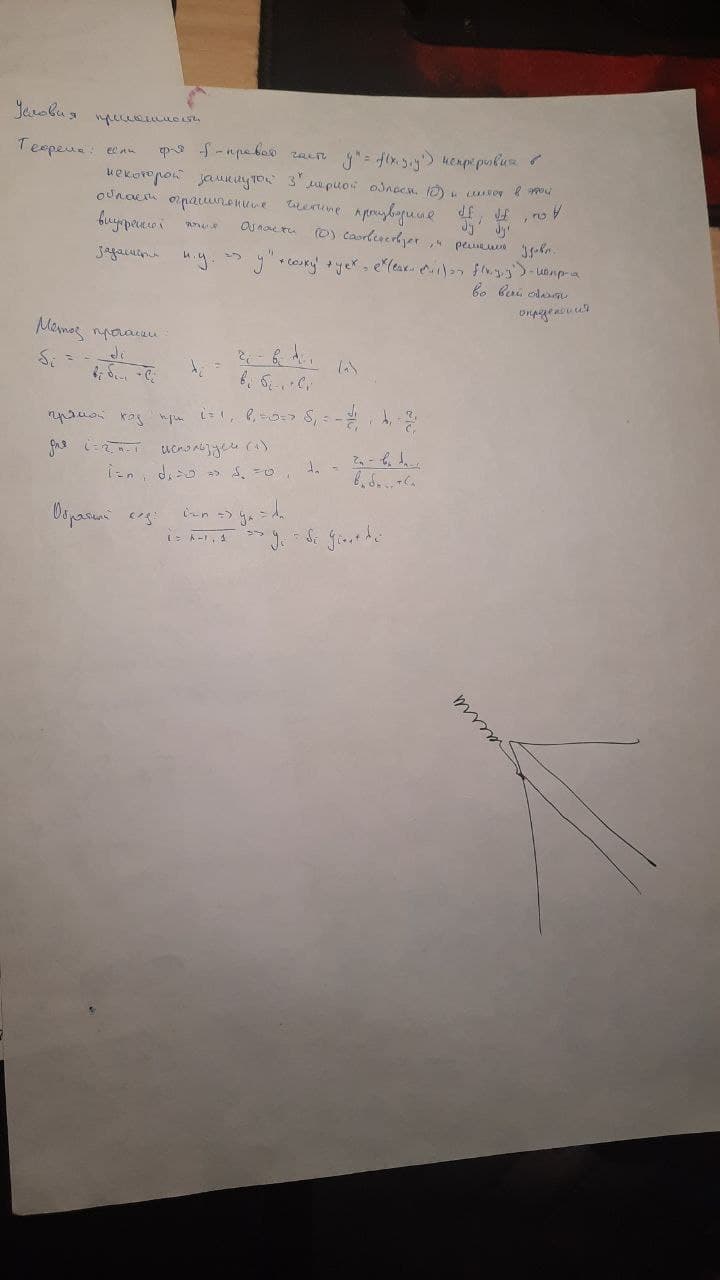 Условия применимости
Теорема: если ф-я f - правая часть y'' = f(x, y, y') непрерывна в
некоторой замкнутой 3х мерной области (D) и имеет в этой
области ограниченные частные производные df/dy; df/dy', то ∀
внутренней точке области (D) соответствует, и решение удовл.
н.у. => y'' + cosxy' + ye^x = e^x( => f(x, y, y') - непр-а
во всей области
определения
Метод прогонки:
δi = - di/(bi δi-1 + ci) λi = (ri - bi λi-1)/(bi δi-1 + ci) (1)
прямой ход при i=1, b1=0 => δ1 = - d1/c1, λ1 = r1/c1
для i=2, n-1 используем (1)
i=n, dn=0 => δn=0, λn = (rn - bn λn-1)/(bn δn-1 + cn)
Обратный ход: i=n => yn = λn
i = n-1, 1 => yi = δi yi+1 + λi